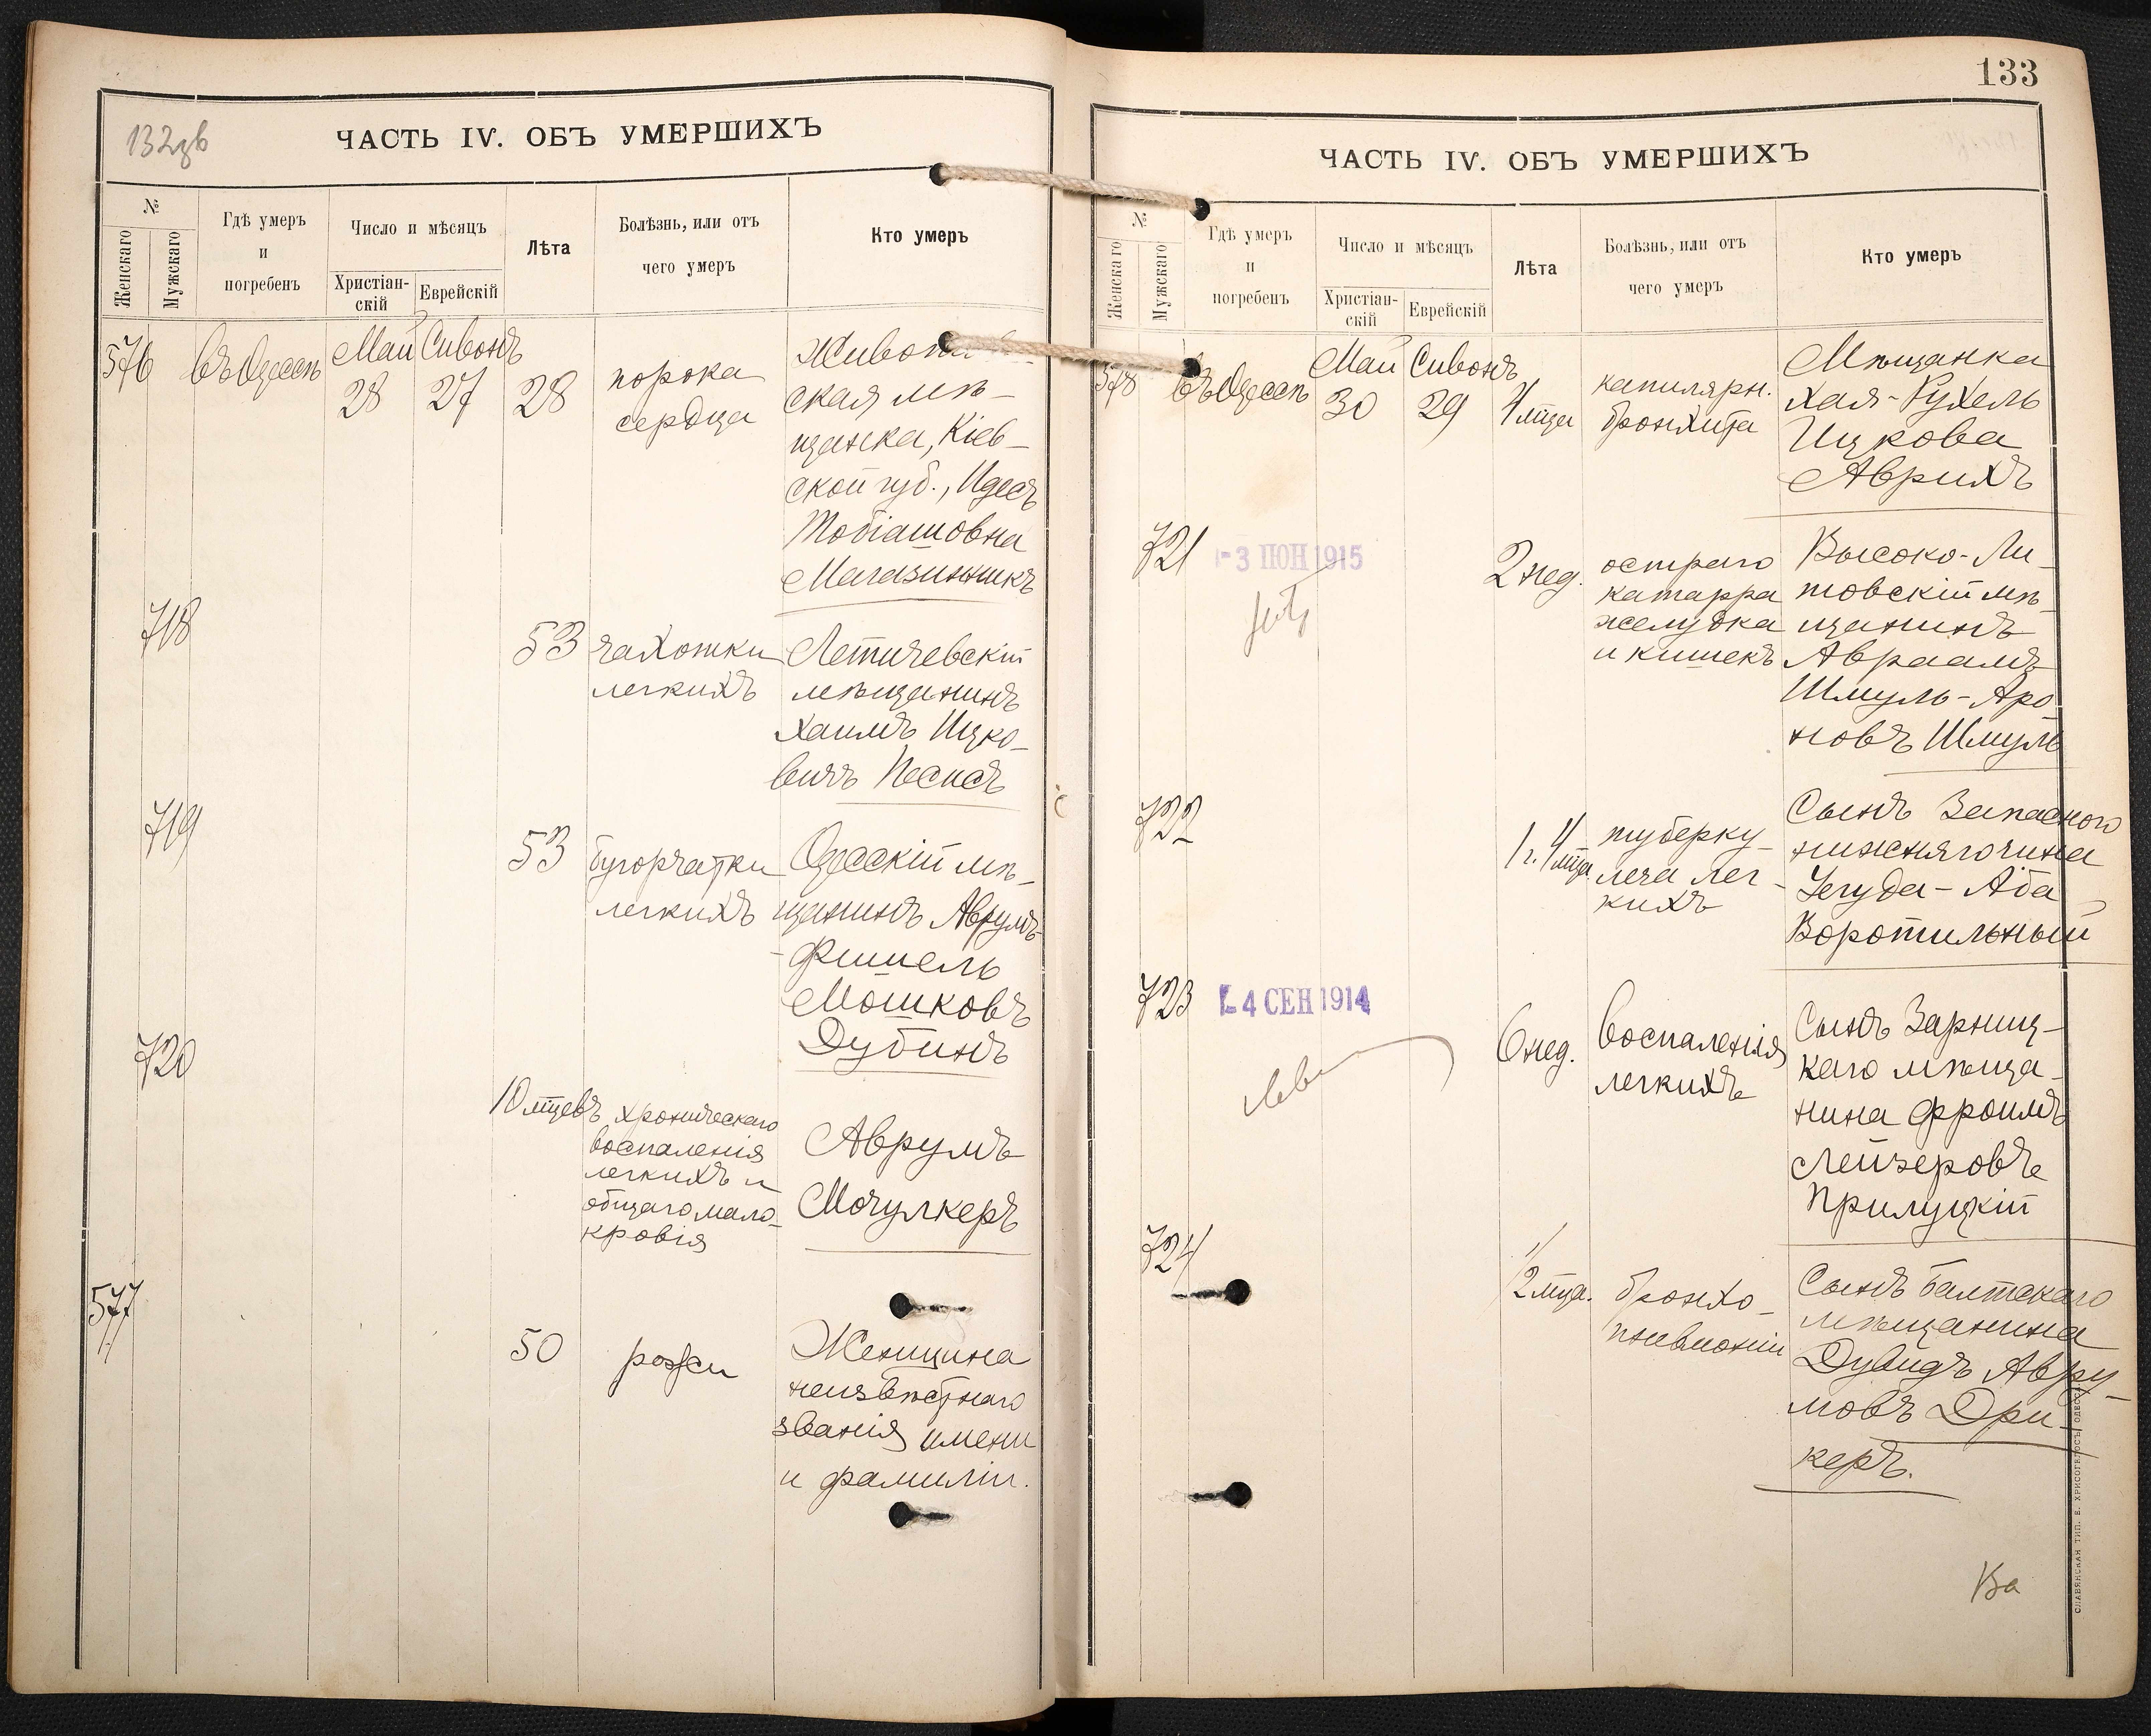 132зв
ЧАСТЬ IV. ОБЪ УМЕРШИХЪ
№
Женскаго
Мужскаго
Гдѣ умеръ
и
погребенъ
Число и мѣсяцъ
Христіан-
скій
Еврейскій
Лѣта
Болѣзнь, или отъ
чего умеръ
Кто умеръ
576
въ Одессѣ
Май
28
Сивонъ
27
28
порока
сердца
ская мѣ-
щанка, Кіев-
ской губ., Идесъ
Тобіашовна
Магазинникъ
718
53
чахотки
легкихъ
Летичевскій
мѣщанинъ
Хаимъ Ицко-
вичъ Песисъ
719
53
бугорчатки
легкихъ
Одесскій мѣ-
щанинъ Аврумъ-
Фишель
Мошковъ
Дубинъ
720
10 мцевъ
хроническаго
воспаленія
легкихъ и
общаго мало-
кровія
Аврумъ
Мочулкеръ
577
50
рожи
Женщина
неизвѣстнаго
званія имени
и фамиліи.
133
ЧАСТЬ IV. ОБЪ УМЕРШИХЪ
№
Женскаго
Мужскаго
Гдѣ умеръ
и
погребенъ
Число и мѣсяцъ
Христіан-
скій
Еврейскій
Лѣта
Болѣзнь, или отъ
чего умеръ
Кто умеръ
578
въ Одессѣ
Май
30
Сивонъ
29
4 мца
капилярн.
бронхита
Мѣщанка
Хая-Рухель
Ицкова
Аврихъ
721
-3 ІЮН 1915
2 нед.
остраго
катарра
желудка
и кишекъ
Высоко-Ли-
товскій мѣ-
щанинъ
Авраамъ
Шмуль-Аро
новъ Шмуль
722
1 г. 4 мца.
туберку-
леза лег-
кихъ
Сынъ Запасного
нижняго чина
Іегуда-Аба
Воротильный
723
-4 СЕН 1914
6 нед.
воспаленія
легкихъ
Сынъ Зарниц-
каго мѣща-
нина Фроимъ
Лейзеровъ
Прилуцкій
724
1/2 мца.
бронхо-
пневмоніи
Сынъ Балтскаго
мѣщанина
Дувидъ Авру-
мовъ Дри-
керъ.
СЛАВЯНСКАЯ ТИП. Е. ХРИСОГЕЛОСЪ, ОДЕССА